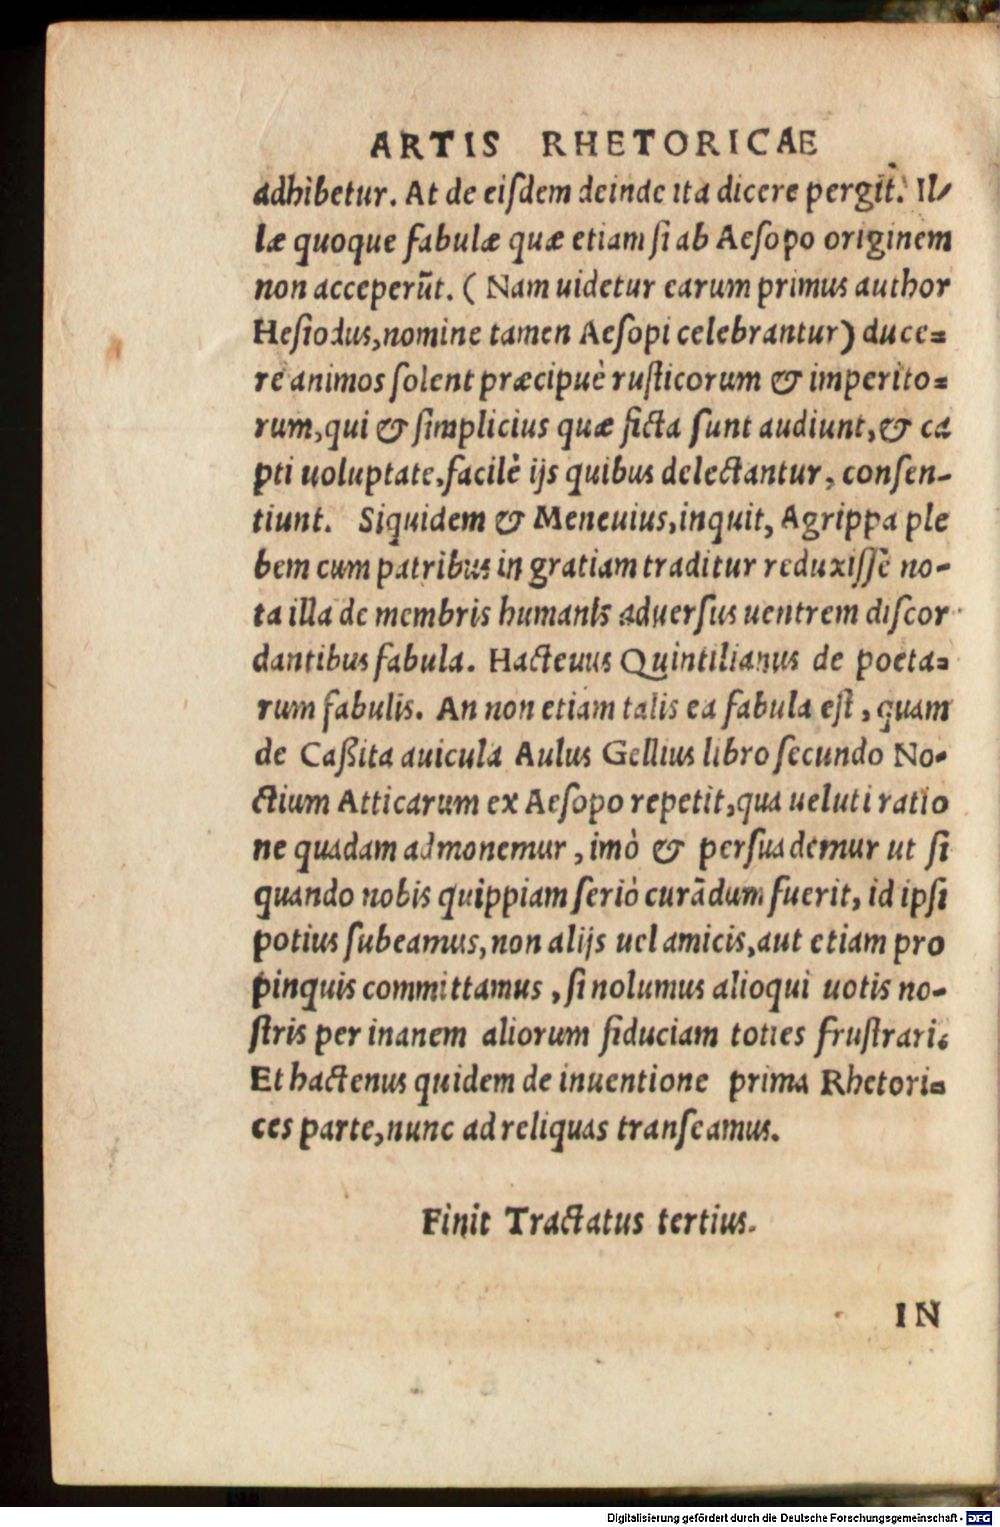 ARTIS RHETORICAE
adhibetur. At de eiſdem deinde ita dicere pergit. Il⸗
læ quoque fabulæ quæ etiam ſi ab Aeſopo originem
non acceperũt. ( Nam uidetur earum primus author
Heſiodus,nomine tamen Aeſopi celebrantur) duce⸗
re animos ſolent præcipuè ruſticorum & imperito⸗
rum,qui & ſimplicius quæ ficta ſunt audiunt,& ca
pti uoluptate,facilè ijs quibus delectantur, conſen-
tiunt. Siquidem & Meneuius,inquit, Agrippa ple
bem cum patribus in gratiam traditur reduxiſſe no-
ta illa de membris humanis aduerſus uentrem diſcor
dantibus fabula. Hacteuus Quintilianus de poeta⸗
rum fabulis. An non etiam talis ea fabula eſt , quam
de Caßita auicula Aulus Gellius libro ſecundo No-
ctium Atticarum ex Aeſopo repetit,qua ueluti ratio
ne quadam admonemur , imò & perſuademur ut ſi
quando nobis quippiam ſeriò curãdum fuerit, id ipſi
potius ſubeamus,non alijs uel amicis,aut etiam pro
pinquis committamus , ſi nolumus alioqui uotis no-
ſtris per inanem aliorum fiduciam toties fruſtrari.
Et hactenus quidem de inuentione prima Rhetori⸗
ces parte,nunc ad reliquas tranſeamus.
Finit Tractatus tertius.
IN
Digitalisierung gefördert durch die Deutsche Forschungsgemeinschaft - DFG